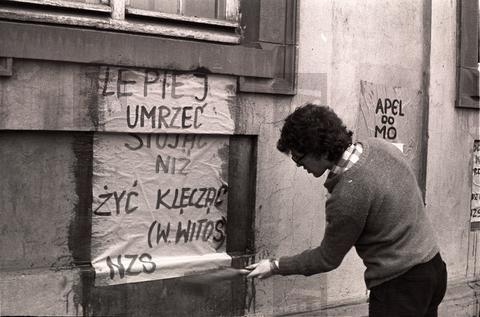 LEPIEJ
UMRZEĆ
STOJĄC
NIŻ
ŻYĆ KLĘCZĄC
(W. WITOS)
NZS
APEL
DO
MO
NZS